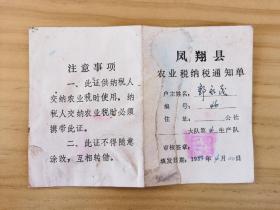 注意事项
一、此证供纳税人
交纳农业税时使用，纳
税人交纳农业税时必须
携带此证。
二、此证不得随意
涂改，互相转借。
凤翔县
农业税纳税通知单
户主姓名：
编号：
住址：公社
大队第生产队
审核签章：
填发日期：198年月日